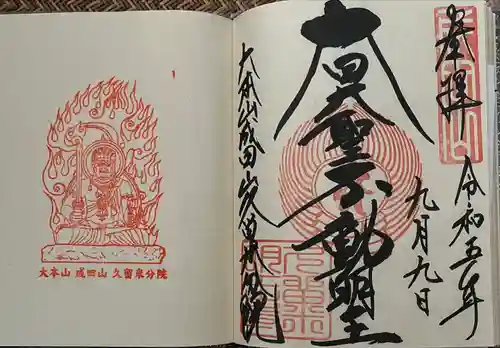 奉拝
令和五年
九月九日
大日大聖不動明王
大本山成田山久留米分院
大本山 成田山 久留米分院